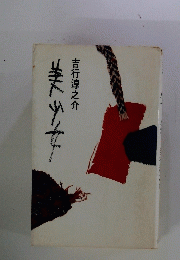 吉行淳之介
美少女